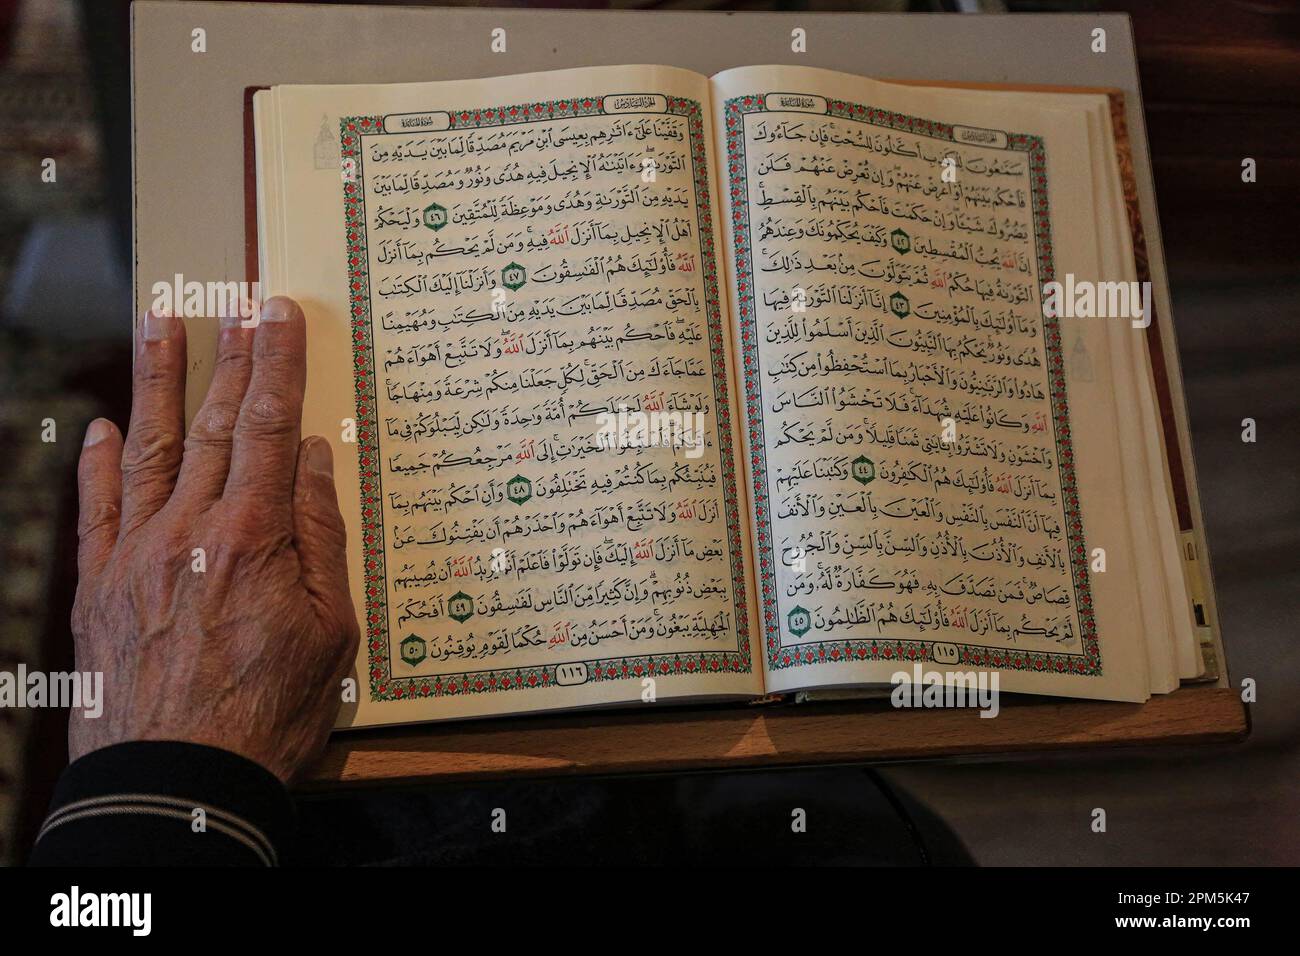 سُورَةُ المَائِدَة
الجُزْءُ السَّادِسُ
سَمَّٰعُونَ لِلۡكَذِبِ أَكَّٰلُونَ لِلسُّحۡتِۚ فَإِن جَآءُوكَ
فَٱحۡكُم بَيۡنَهُمۡ أَوۡ أَعۡرِضۡ عَنۡهُمۡۖ وَإِن تُعۡرِضۡ عَنۡهُمۡ فَلَن
يَضُرُّوكَ شَيۡـٔٗاۖ وَإِنۡ حَكَمۡتَ فَٱحۡكُم بَيۡنَهُم بِٱلۡقِسۡطِۚ
إِنَّ ٱللَّهَ يُحِبُّ ٱلۡمُقۡسِطِينَ ٤٢ وَكَيۡفَ يُحَكِّمُونَكَ وَعِندَهُمُ
ٱلتَّوۡرَىٰةُ فِيهَا حُكۡمُ ٱللَّهِ ثُمَّ يَتَوَلَّوۡنَ مِنۢ بَعۡدِ ذَٰلِكَۚ
وَمَآ أُوْلَٰٓئِكَ بِٱلۡمُؤۡمِنِينَ ٤٣ إِنَّآ أَنزَلۡنَا ٱلتَّوۡرَىٰةَ فِيهَا
هُدٗى وَنُورٞۚ يَحۡكُمُ بِهَا ٱلنَّبِيُّونَ ٱلَّذِينَ أَسۡلَمُواْ لِلَّذِينَ
هَادُواْ وَٱلرَّبَّٰنِيُّونَ وَٱلۡأَحۡبَارُ بِمَا ٱسۡتُحۡفِظُواْ مِن كِتَٰبِ
ٱللَّهِ وَكَانُواْ عَلَيۡهِ شُهَدَآءَۚ فَلَا تَخۡشَوُاْ ٱلنَّاسَ
وَٱخۡشَوۡنِ وَلَا تَشۡتَرُواْ بِـَٔايَٰتِي ثَمَنٗا قَلِيلٗاۚ وَمَن لَّمۡ يَحۡكُم
بِمَآ أَنزَلَ ٱللَّهُ فَأُوْلَٰٓئِكَ هُمُ ٱلۡكَٰفِرُونَ ٤٤ وَكَتَبۡنَا عَلَيۡهِمۡ
فِيهَآ أَنَّ ٱلنَّفۡسَ بِٱلنَّفۡسِ وَٱلۡعَيۡنَ بِٱلۡعَيۡنِ وَٱلۡأَنفَ
بِٱلۡأَنفِ وَٱلۡأُذُنَ بِٱلۡأُذُنِ وَٱلسِّنَّ بِٱلسِّنِّ وَٱلۡجُرُوحَ
قِصَاصٞۚ فَمَن تَصَدَّقَ بِهِۦ فَهُوَ كَفَّارَةٞ لَّهُۥۚ وَمَن
لَّمۡ يَحۡكُم بِمَآ أَنزَلَ ٱللَّهُ فَأُوْلَٰٓئِكَ هُمُ ٱلظَّٰلِمُونَ ٤٥
١١٥
الجُزْءُ السَّادِسُ
سُورَةُ المَائِدَة
وَقَفَّيۡنَا عَلَىٰٓ ءَاثَٰرِهِم بِعِيسَى ٱبۡنِ مَرۡيَمَ مُصَدِّقٗا لِّمَا بَيۡنَ يَدَيۡهِ مِنَ
ٱلتَّوۡرَىٰةِۖ وَءَاتَيۡنَٰهُ ٱلۡإِنجِيلَ فِيهِ هُدٗى وَنُورٞ وَمُصَدِّقٗا لِّمَا بَيۡنَ
يَدَيۡهِ مِنَ ٱلتَّوۡرَىٰةِ وَهُدٗى وَمَوۡعِظَةٗ لِّلۡمُتَّقِينَ ٤٦ وَلۡيَحۡكُمۡ
أَهۡلُ ٱلۡإِنجِيلِ بِمَآ أَنزَلَ ٱللَّهُ فِيهِۚ وَمَن لَّمۡ يَحۡكُم بِمَآ أَنزَلَ
ٱللَّهُ فَأُوْلَٰٓئِكَ هُمُ ٱلۡفَٰسِقُونَ ٤٧ وَأَنزَلۡنَآ إِلَيۡكَ ٱلۡكِتَٰبَ
بِٱلۡحَقِّ مُصَدِّقٗا لِّمَا بَيۡنَ يَدَيۡهِ مِنَ ٱلۡكِتَٰبِ وَمُهَيۡمِنًا
عَلَيۡهِۖ فَٱحۡكُم بَيۡنَهُم بِمَآ أَنزَلَ ٱللَّهُۖ وَلَا تَتَّبِعۡ أَهۡوَآءَهُمۡ
عَمَّا جَآءَكَ مِنَ ٱلۡحَقِّۚ لِكُلّٖ جَعَلۡنَا مِنكُمۡ شِرۡعَةٗ وَمِنۡهَاجٗاۚ
وَلَوۡ شَآءَ ٱللَّهُ لَجَعَلَكُمۡ أُمَّةٗ وَٰحِدَةٗ وَلَٰكِن لِّيَبۡلُوَكُمۡ فِي مَآ
ءَاتَىٰكُمۡۖ فَٱسۡتَبِقُواْ ٱلۡخَيۡرَٰتِۚ إِلَى ٱللَّهِ مَرۡجِعُكُمۡ جَمِيعٗا
فَيُنَبِّئُكُم بِمَا كُنتُمۡ فِيهِ تَخۡتَلِفُونَ ٤٨ وَأَنِ ٱحۡكُم بَيۡنَهُم بِمَآ
أَنزَلَ ٱللَّهُ وَلَا تَتَّبِعۡ أَهۡوَآءَهُمۡ وَٱحۡذَرۡهُمۡ أَن يَفۡتِنُوكَ عَنۢ
بَعۡضِ مَآ أَنزَلَ ٱللَّهُ إِلَيۡكَۖ فَإِن تَوَلَّوۡاْ فَٱعۡلَمۡ أَنَّمَا يُرِيدُ ٱللَّهُ أَن يُصِيبَهُم
بِبَعۡضِ ذُنُوبِهِمۡۗ وَإِنَّ كَثِيرٗا مِّنَ ٱلنَّاسِ لَفَٰسِقُونَ ٤٩ أَفَحُكۡمَ
ٱلۡجَٰهِلِيَّةِ يَبۡغُونَۚ وَمَنۡ أَحۡسَنُ مِنَ ٱللَّهِ حُكۡمٗا لِّقَوۡمٖ يُوقِنُونَ ٥٠
١١٦
alamy
Image ID: 2PM5K47
www.alamy.com